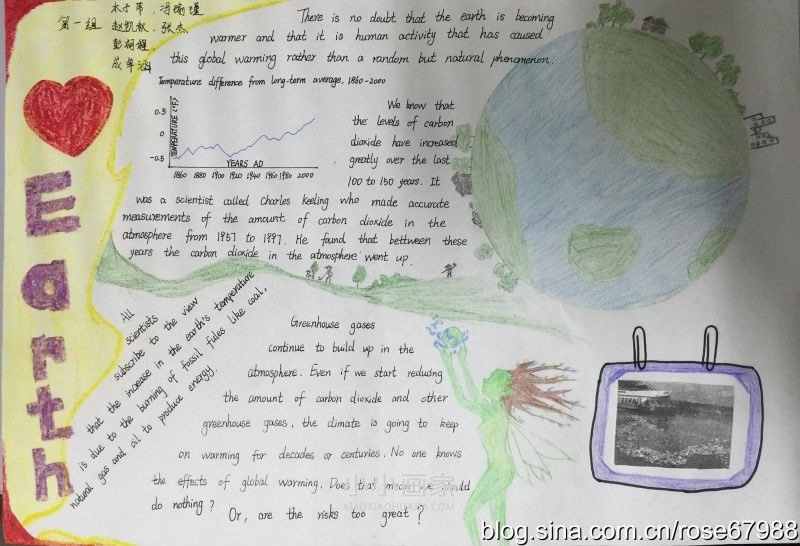 第一组
赵凯秋、张杰
There is no doubt that the earth is becoming
warmer and that it is human activity that has caused
this global warming rather than a random but natural phenomenon.
Temperature difference from long-term average, 1860-2000
TEMPERATURE (°F)
0.5
0
-0.5
YEARS AD
1860 1880 1900 1920 1940 1960 1980 2000
We know that
the levels of carbon
dioxide have increased
greatly over the last
100 to 150 years. It
was a scientist called Charles Keeling who made accurate
measurements of the amount of carbon dioxide in the
atmosphere from 1957 to 1997. He found that bettween these
years the carbon dioxide in the atmosphere went up.
Earth
All
scientists
subscribe to the view
that the increase in the earth's temperature
is due to the burning of fossil fules like coal,
natural gas and oil to produce energy.
Greenhouse gases
continue to build up in the
atmosphere. Even if we start reducing
the amount of carbon dioxide and other
greenhouse gases, the climate is going to keep
on warming for decades or centuries. No one knows
the effects of global warming. Does that mean we should
do nothing?
Or, are the risks too great?
小小画家
XIAOXIAOHUAJIA.COM
blog.sina.com.cn/rose67988